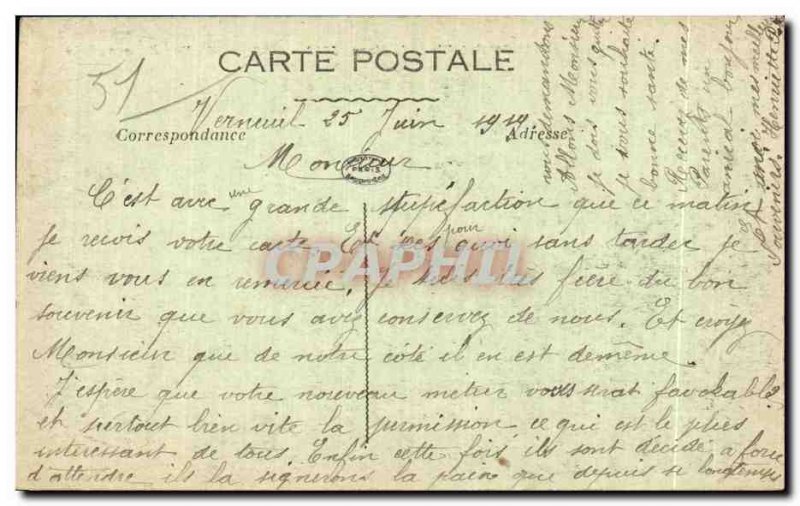 CARTE POSTALE
51
Verneuil 25 Juin 1914
Correspondance
Adresse
Monsieur
PARIS
C'est avec une grande stupéfaction que ce matin
je reçois votre carte Et c'est pour quoi sans tarder je
viens vous en remercié, Je suis très fière du bon
souvenir que vous avez conservez de nous. Et croyez
Monsieur que de notre côté il en est de même.
J'espère que votre nouveau métier vous serat favorable
et surtout bien vite la permission ce qui est le plus
interessant de tous. Enfin cette fois ils sont décidé a force
d'attendre ils la signerons la paix que depuis si longtemps
nous demandons
Allons Monsieur
je dois vous quitte
je vous souhaite
bonne santé.
Recevez de mes
Parents un
amical bonjour
et ainsi mes meilleurs
souvenirs. Henriette
CPAPHIL